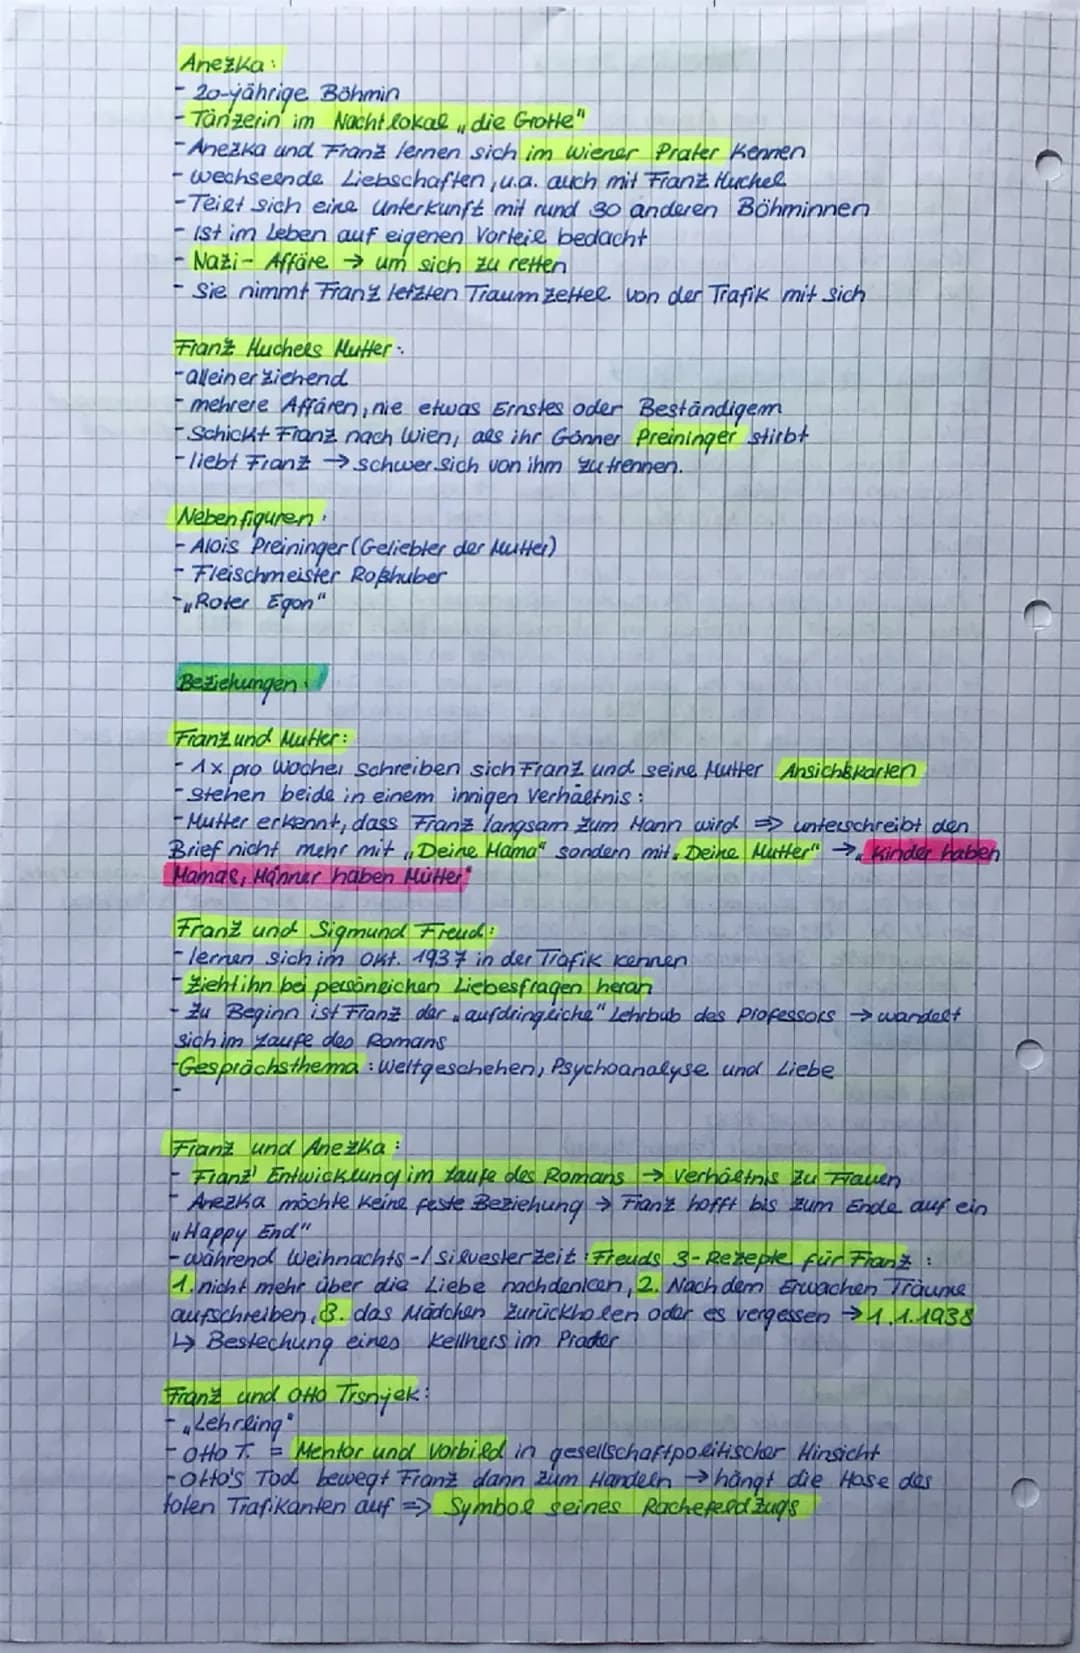 Anežka:
- 20-jährige Böhmin
- Tänzerin im Nachtlokal „die Grotte"
- Anežka und Franz lernen sich im Wiener Prater kennen
- wechselnde Liebschaften, u.a. auch mit Franz Huchel
- Teilt sich eine Unterkunft mit rund 30 anderen Böhminnen
- Ist im Leben auf eigenen Vorteil bedacht
- Nazi-Affäre → um sich zu retten
- Sie nimmt Franz letzten Traumzettel von der Trafik mit sich
Franz Huchels Mutter:
- alleinerziehend
- mehrere Affären, nie etwas Ernstes oder Beständigem
- Schickt Franz nach Wien, als ihr Gönner Preininger stirbt
- liebt Franz → schwer sich von ihm zu trennen.
Nebenfiguren:
- Alois Preininger (Geliebter der Mutter)
- Fleischmeister Roßhuber
- „Roter Egon"
Beziehungen:
Franz und Mutter:
- 1x pro Woche, schreiben sich Franz und seine Mutter Ansichskarten
- stehen beide in einem innigen Verhältnis:
- Mutter erkennt, dass Franz langsam zum Mann wird ⇒ unterschreibt den
Brief nicht mehr mit „Deine Mama" sondern mit „Deine Mutter" → „Kinder haben
Mamas, Männer haben Mütter"
Franz und Sigmund Freud:
- lernen sich im Okt. 1937 in der Trafik kennen
- Zieht ihn bei persönlichen Liebesfragen heran
- Zu Beginn ist Franz der „aufdringliche" Lehrbub des Professors → wandelt
sich im Laufe des Romans
- Gesprächsthema: Weltgeschehen, Psychoanalyse und Liebe
-
Franz und Anežka:
- Franz' Entwicklung im Laufe des Romans → Verhältnis zu Frauen
- Anežka möchte keine feste Beziehung → Franz hofft bis zum Ende auf ein
„Happy End"
- während Weihnachts-/Silvesterzeit: Freuds 3-Rezepte für Franz:
1. nicht mehr über die Liebe nachdenken, 2. Nach dem Erwachen Träume
aufschreiben, 3. das Mädchen zurückholen oder es vergessen → 1.1.1938
↳ Bestechung eines Kellners im Prater
Franz und Otto Trsnjek:
- „Lehrling"
- Otto T. = Mentor und Vorbild in gesellschaftpolitischer Hinsicht
- Otto's Tod bewegt Franz dann zum Handeln → hängt die Hose des
toten Trafikanten auf ⇒ Symbol seines Rachefeldzugs